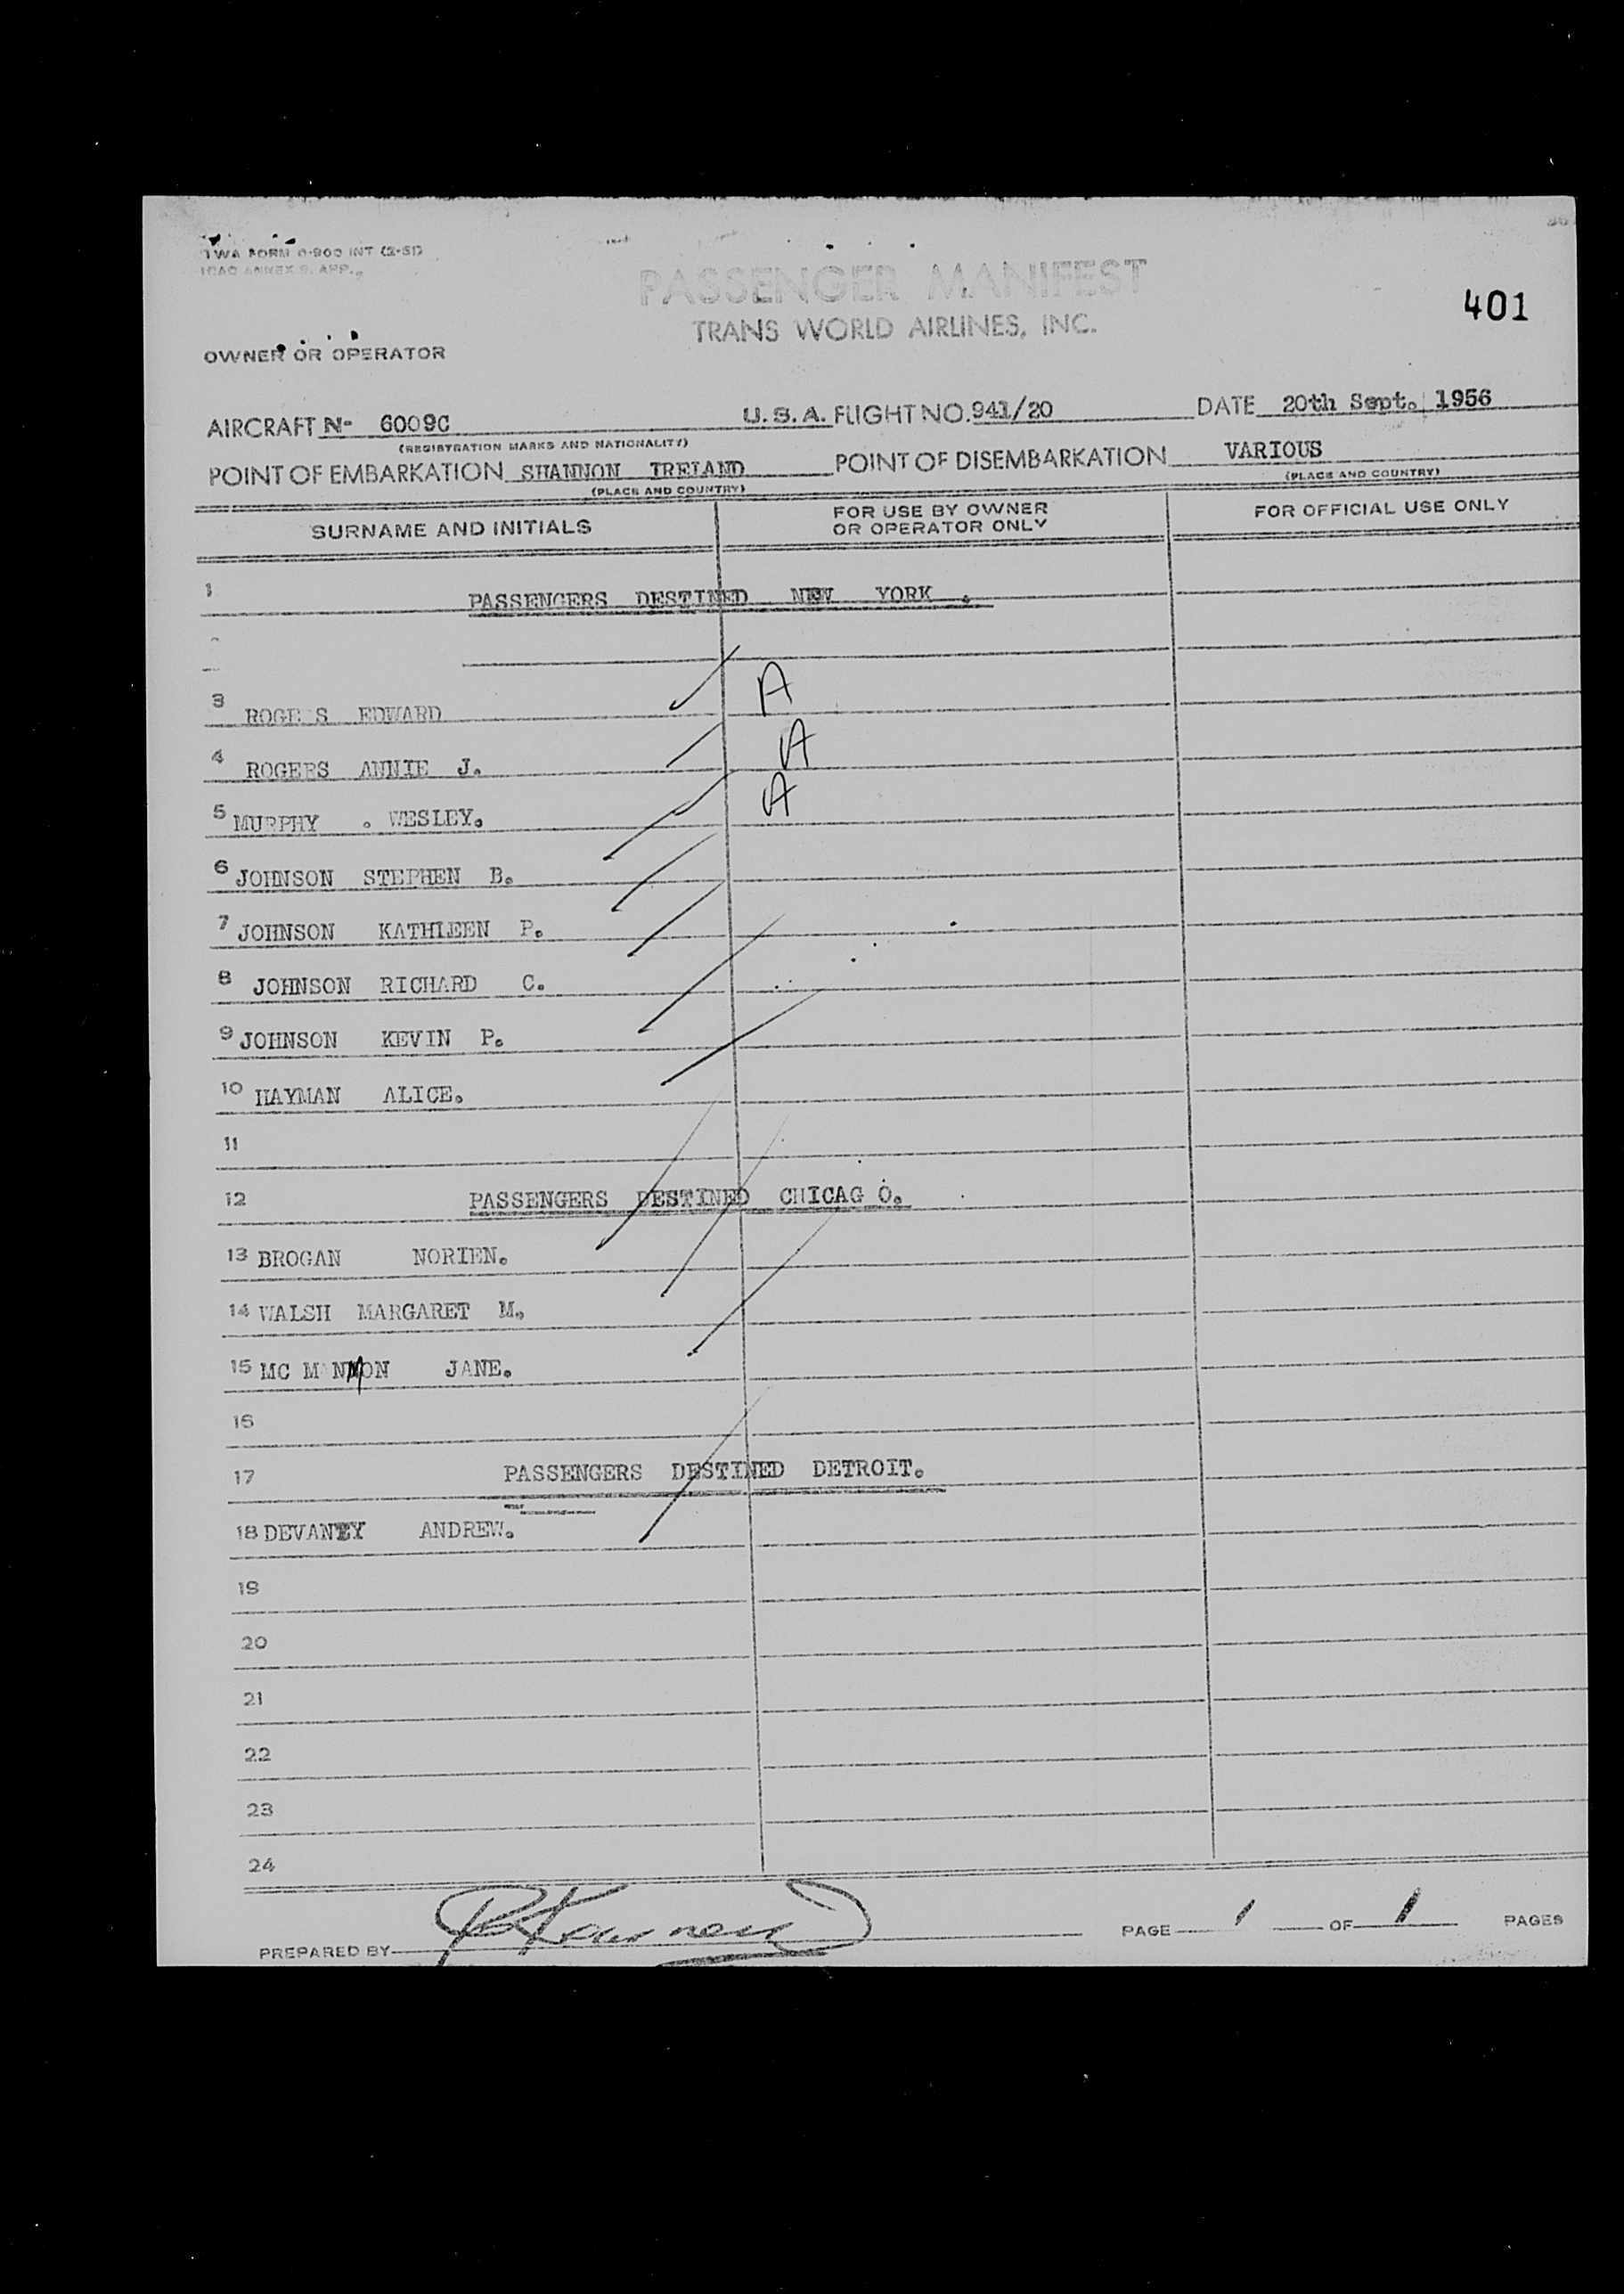 TWA FORM 0-900 INT (2-51)
ICAO ANNEX 9. APP.
PASSENGER MANIFEST
TRANS WORLD AIRLINES, INC.
401
OWNER OR OPERATOR
AIRCRAFT N- 6009C U.S.A. FLIGHT NO. 941/20 DATE 20th Sept. 1956
(REGISTRATION MARKS AND NATIONALITY)
POINT OF EMBARKATION SHANNON IRELAND POINT OF DISEMBARKATION VARIOUS
(PLACE AND COUNTRY) (PLACE AND COUNTRY)
SURNAME AND INITIALS FOR USE BY OWNER OR OPERATOR ONLY FOR OFFICIAL USE ONLY
1 PASSENGERS DESTINED NEW YORK .
3 ROGE S EDWARD A
4 ROGERS ANNIE J. A
5 MURPHY . WESLEY. A
6 JOHNSON STEPHEN B.
7 JOHNSON KATHLEEN P.
8 JOHNSON RICHARD C.
9 JOHNSON KEVIN P.
10 HAYMAN ALICE.
11
12 PASSENGERS DESTINED CHICAG O.
13 BROGAN NORIEN.
14 WALSH MARGARET M.
15 MC M NMON JANE.
16
17 PASSENGERS DESTINED DETROIT.
18 DEVANEY ANDREW.
19
20
21
22
23
24
PREPARED BY PAGE 1 OF 1 PAGES